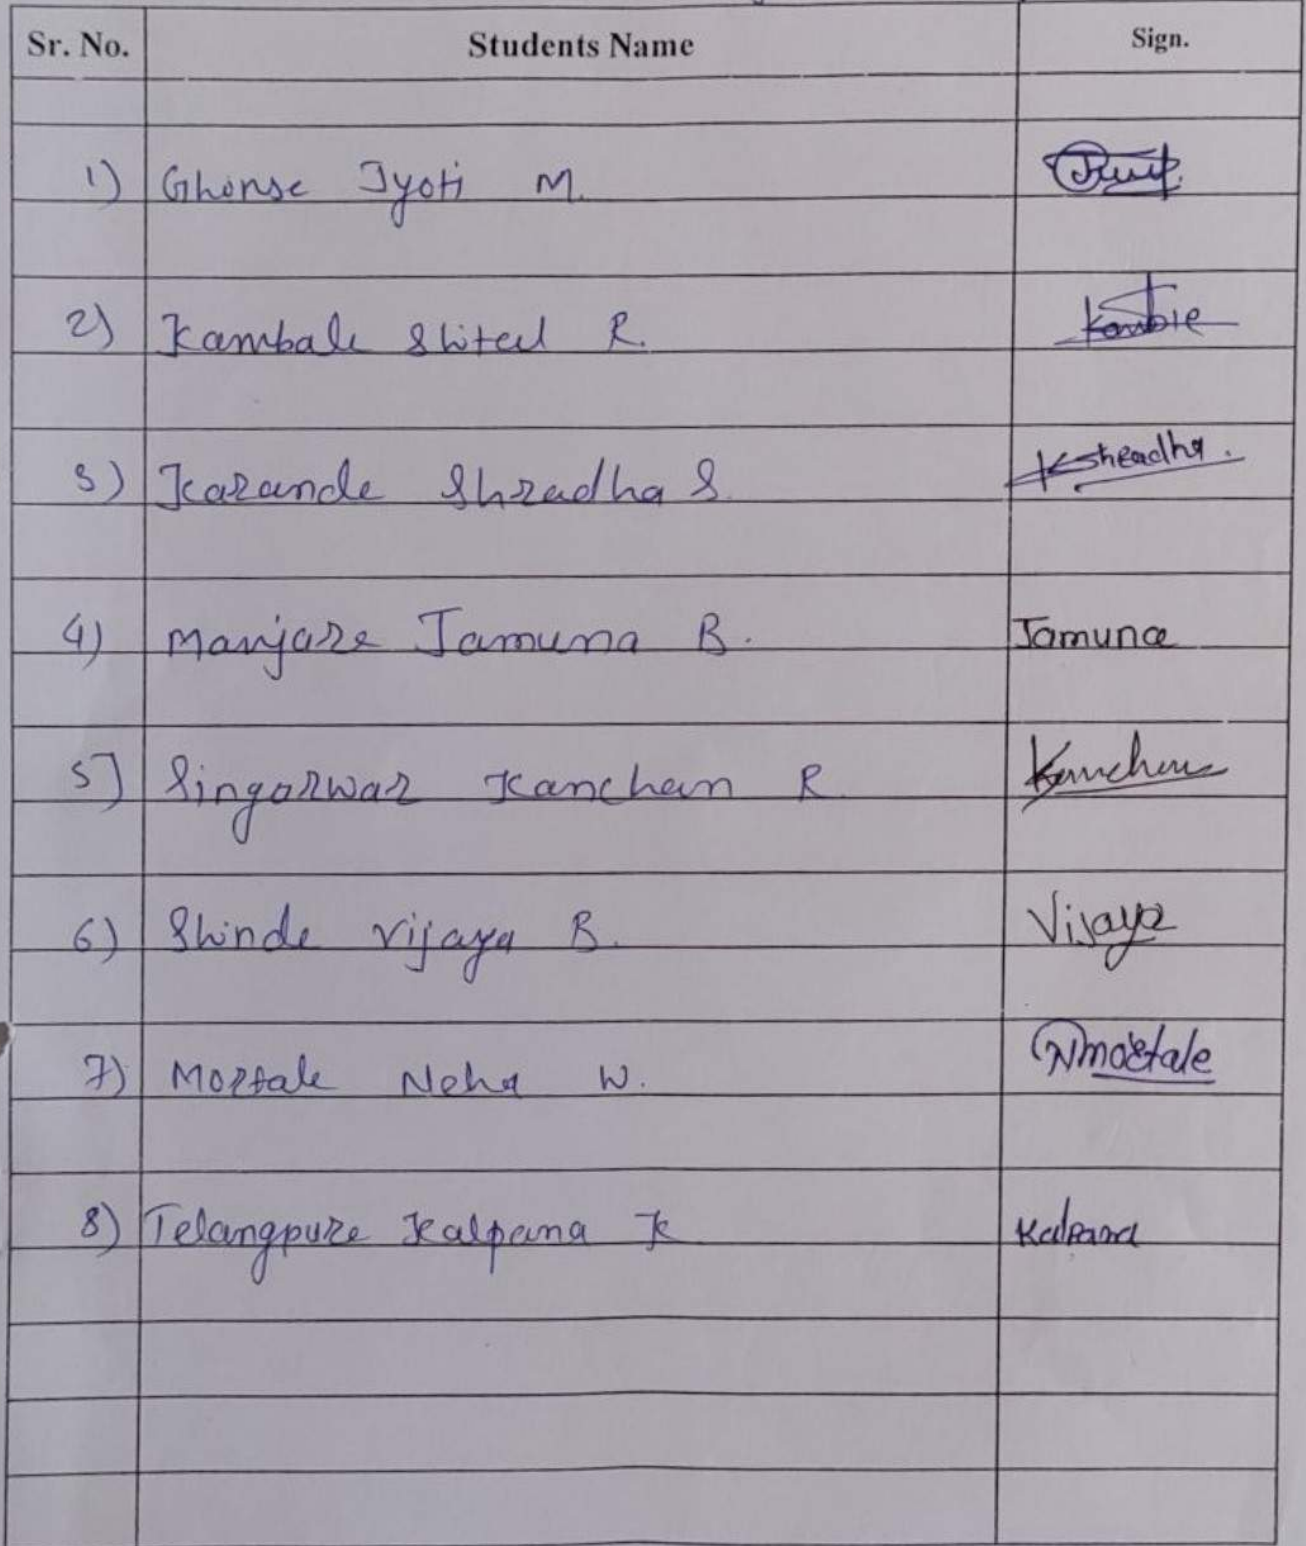 Sr. No. Students Name Sign.
1) Ghonse Jyoti M.
2) Kambale Shital R. Kamble
3) Karande Shradha S. Kshradha.
4) Manjare Jamuna B. Jamuna
5] Singarwar Kanchan R Kanchan
6) Shinde Vijaya B. Vijaya
7) Mortale Neha W. Nmortale
8) Telangpure Kalpana K Kalpana